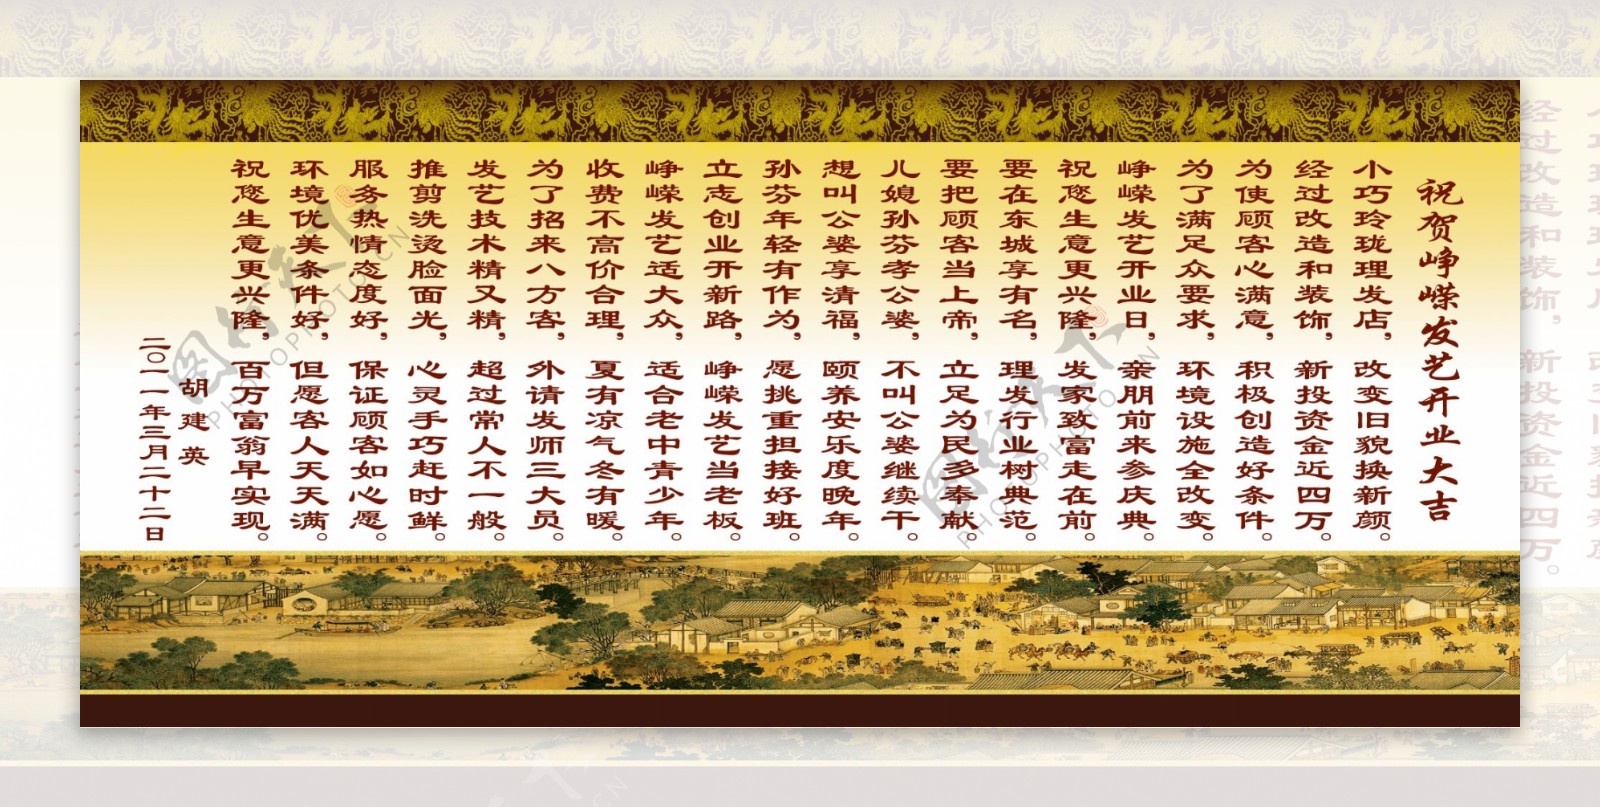 祝贺峥嵘发艺开业大吉
小巧玲珑理发店，改变旧貌换新颜。
经过改造和装饰，新投资金近四万。
为使顾客心满意，积极创造好条件。
为了满足众要求，环境设施全改变。
峥嵘发艺开业日，亲朋前来参庆典。
祝您生意更兴隆，发家致富走在前。
要在东城享有名，理发行业树典范。
要把顾客当上帝，立足为民多奉献。
儿媳孙芬孝公婆，不叫公婆继续干。
想叫公婆享清福，颐养安乐度晚年。
孙芬年轻有作为，愿挑重担接好班。
立志创业开新路，峥嵘发艺当老板。
峥嵘发艺适大众，适合老中青少年。
收费不高价合理，夏有凉气冬有暖。
为了招来八方客，外请发师三大员。
发艺技术精又精，超过常人不一般。
推剪洗烫脸面光，心灵手巧赶时鲜。
服务热情态度好，保证顾客如心愿。
环境优美条件好，但愿客人天天满。
祝您生意更兴隆，百万富翁早实现。
胡建英
二〇一一年三月二十二日
图行天下
PHOTOPHOTO.CN
图行天下
PHOTOPHOTO.CN